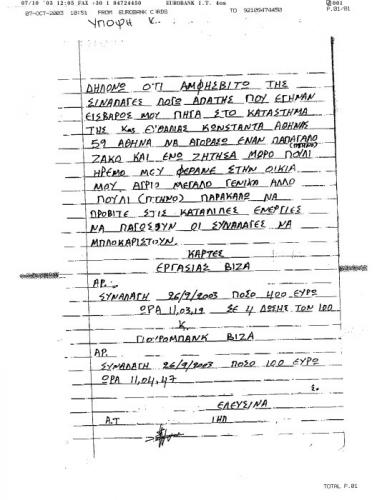 07/10 '03 12:05 FAX +30 1 84724450 EUROBANK I.T. 4om 001
07-OCT-2003 10:51 FROM EUROBANK CARDS TO 92109474450 P.01/01
ΥΠΟΨΗ Κ.
ΔΗΛΟΝΩ ΟΤΙ ΑΜΦΗΣΒΙΤΩ ΤΗΣ
ΣΙΝΑΛΑΓΕΣ ΛΟΓΩ ΑΠΑΤΗΣ ΠΟΥ ΕΓΗΝΑΝ
ΕΙΣΒΑΡΟΣ ΜΟΥ ΠΗΓΑ ΣΤΟ ΚΑΤΑΣΤΗΜΑ
ΤΗΣ Κας ΚΩΝΣΤΑΝΤΑ ΑΘΗΝΑΣ
59 ΑΘΗΝΑ ΝΑ ΑΓΟΡΑΣΩ ΕΝΑΝ ΠΑΠΑΓΑΛΟ
(ΠΤΗΝΟ)
ΖΑΚΟ ΚΑΙ ΕΝΩ ΖΗΤΗΣΑ ΜΩΡΟ ΠΟΥΛΙ
ΗΡΕΜΟ ΜΟΥ ΦΕΡΑΝΕ ΣΤΗΝ ΟΙΚΙΑ
ΜΟΥ ΑΓΡΙΟ ΜΕΓΑΛΟ ΓΕΝΙΚΑ ΑΛΛΟ
ΠΟΥΛΙ (ΠΤΗΝΟ) ΠΑΡΑΚΑΛΩ ΝΑ
ΠΡΟΒΙΤΕ ΣΤΙΣ ΚΑΤΑΛΙΛΕΣ ΕΝΕΡΓΙΕΣ
ΝΑ ΠΑΓΟΣΟΥΝ ΟΙ ΣΥΝΑΛΑΓΕΣ ΝΑ
ΜΠΛΟΚΑΡΙΣΤΟΥΝ.
ΚΑΡΤΕΣ
ΕΡΓΑΣΙΑΣ ΒΙΖΑ
ΑΡ.
ΣΥΝΑΛΑΓΗ 26/9/2003 ΠΟΣΟ 400 ΕΥΡΩ
ΩΡΑ 11,03,12 ΣΕ 4 ΔΩΣΗΣ ΤΩΝ 100
Κ.
ΓΙΟΥΡΟΜΠΑΝΚ ΒΙΖΑ
ΑΡ.
ΣΥΝΑΛΑΓΗ 26/9/2003 ΠΟΣΟ 100 ΕΥΡΩ
ΩΡΑ 11,04,47
Σ.
ΕΛΕΥΣΙΝΑ
Α.Τ
TOTAL P.01